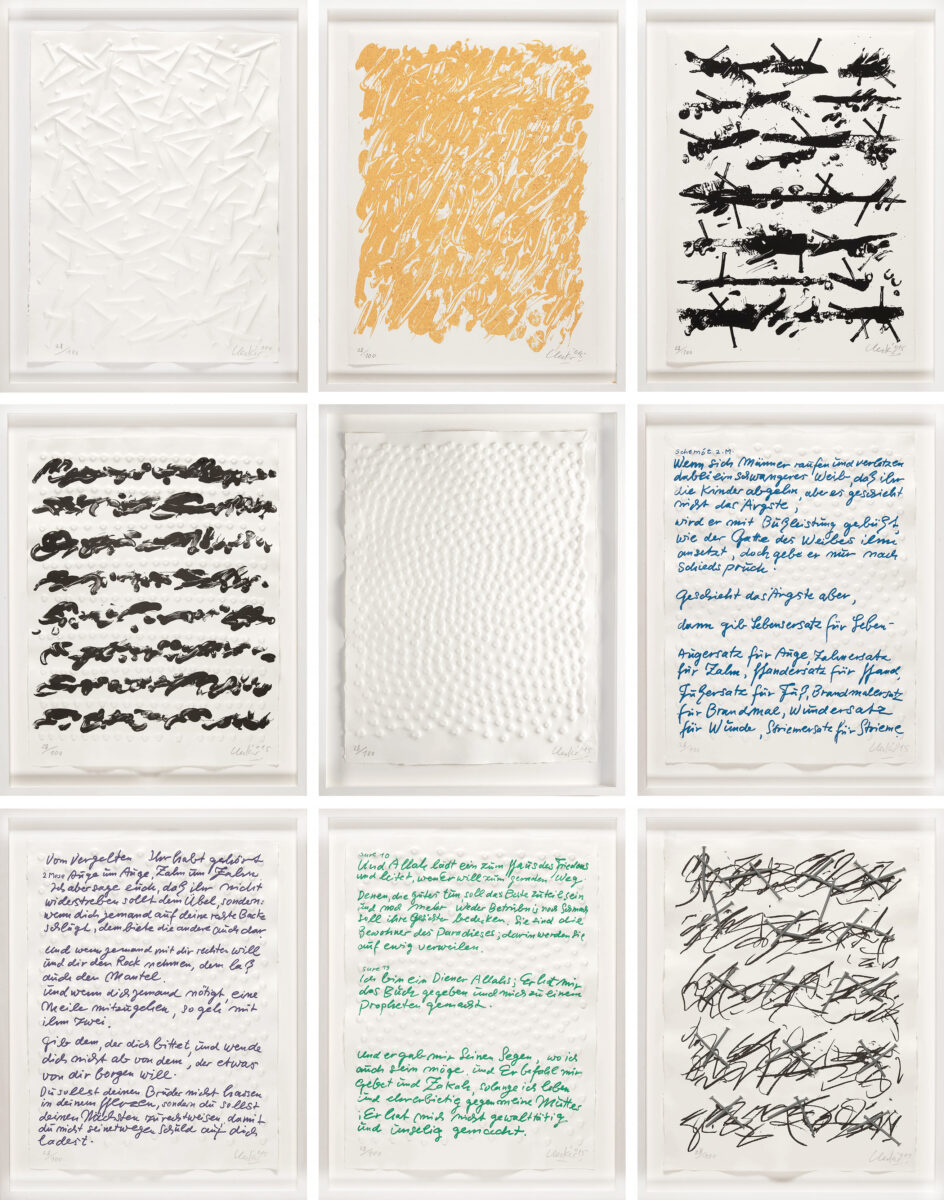 28/100 Uecker
28/100 Uecker
28/100 Uecker '15
28/100 Uecker '15
28/100 Uecker '15
Schemot. 2. M.
Wenn sich Männer raufen und verletzen
dabei ein schwangeres Weib, daß ihr
die Kinder abgehn, aber es geschieht
nicht das Ärgste,
wird er mit Bußleistung gebüßt,
wie der Gatte des Weibes ihm
ansetzt, doch gebe er nur nach
Schiedspruch.
Geschieht das Ärgste aber,
dann gib Lebensersatz für Leben-
Augersatz für Auge, Zahnersatz
für Zahn, Handersatz für Hand,
Fußersatz für Fuß, Brandmalersatz
für Brandmal, Wundersatz
für Wunde, Striemersatz für Strieme
Uecker '15
Vom Vergelten Ihr habt gehört
2 Mose Auge um Auge, Zahn um Zahn
Ich aber sage euch, daß ihr nicht
widerstreben sollt dem Übel, sondern:
wenn dich jemand auf deine rechte Backe
schlägt, dem biete die andere auch dar
Und wenn jemand mit dir rechten will
und dir den Rock nehmen, dem laß
auch den Mantel.
Und wenn dich jemand nötigt, eine
Meile mitzugehen, so geh mit
ihm zwei.
Gib dem, der dich bittet, und wende
dich nicht ab von dem, der etwas
von dir borgen will.
Du sollst deinen Bruder nicht hassen
in deinem Herzen, sondern du sollst
deinen Nächsten zurechtweisen, damit
du nicht seinetwegen Schuld auf dich
ladest.
28/100 Uecker '15
Sure 10
Und Allah lädt ein zum Haus des Friedens
und leitet, wen Er will zum geraden Weg
Denen, die gutes tun soll das Beste zuteil sein
und noch mehr. Weder Betrübnis noch Schmach
soll ihre Gesichter bedecken. Sie sind die
Bewohner des Paradieses; darin werden sie
auf ewig verweilen.
Sure 19
Ich bin ein Diener Allahs; Er hat mir
das Buch gegeben und mich zu einem
Propheten gemacht.
Und er gab mir Seinen Segen, wo ich
auch sein möge, und Er befahl mir
Gebet und Zakah, solange ich lebe
und ehrerbietig gegen meine Mutter
; Er hat mich nicht gewalttätig
und unselig gemacht.
28/100 Uecker '15
28/100 Uecker '15